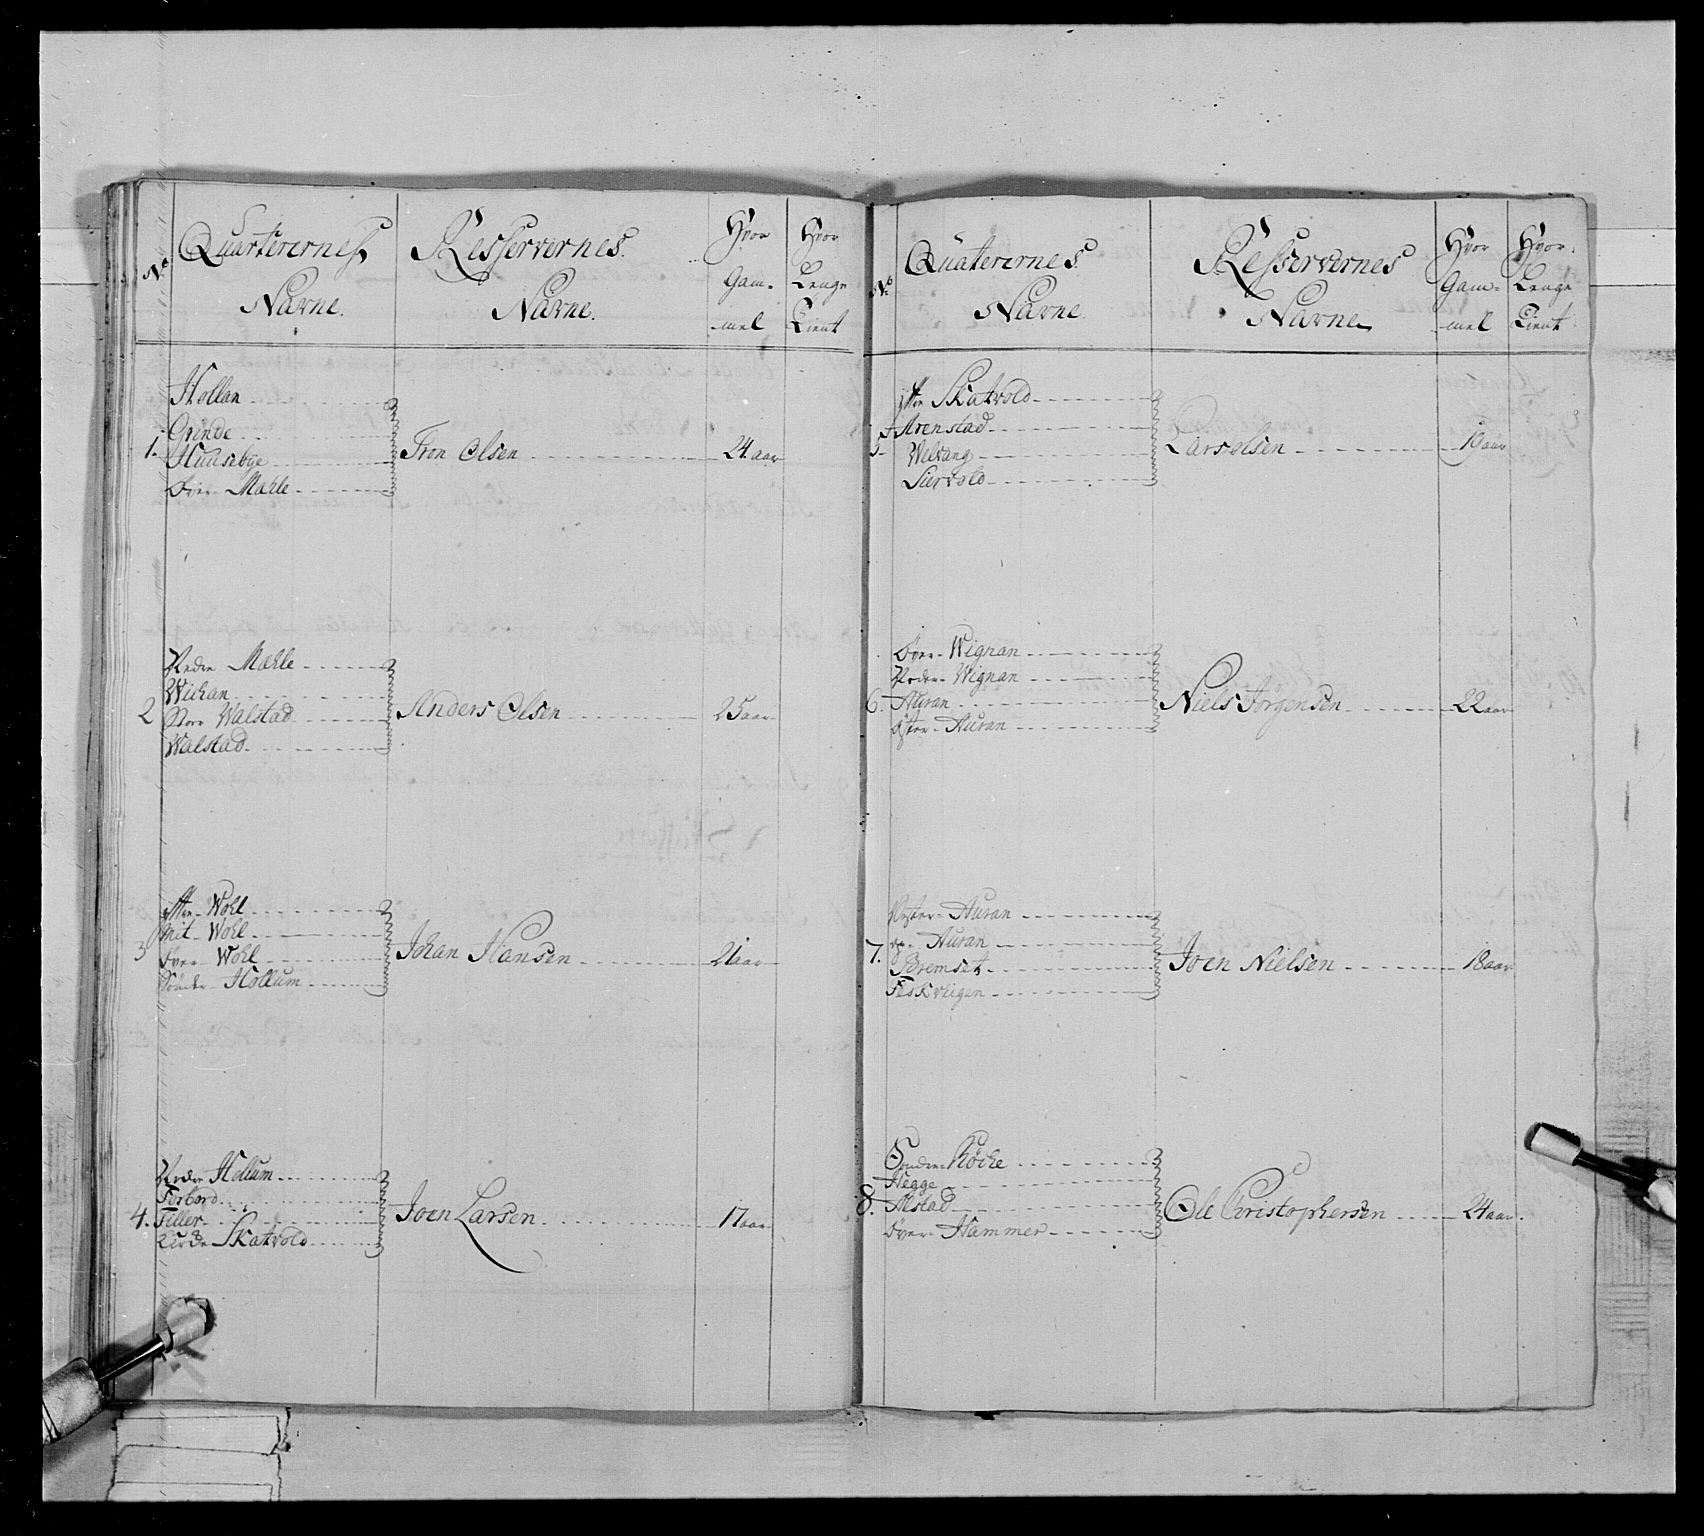 No
Quarterernes
Navne.
Resservernes.
Navne.
Hvor
Gam-
mel
Hvor
Lenge
Tient
Hollan
Grinde
Huusebye
Över- Mæhle
1. Tron Olsen 24 aar
Nedre Mæhle
Wichan
Store Walstad
Walstad
2 Anders Olsen 25 aar
Ytter- Wohl
Mit- Wohl
Över- Wohl
Söndr- Hollum
3 Johan Hansen 21 aar
Nedr- Hollum
Forbord
Filler
Skatvold
4. Joen Larsen 17 aar
No
Quaterernes
Navne.
Resservernes
Navne
Hvor
Gam-
mel
Hvor
Lenge
Tient
Ytter Skatvold
Arenstad
Welvang
Liervold
5. Lars Olsen 19 aar
Över- Wignan
Nedr- Wignan
Auran
Öster- Auran
6. Niels Jörgensen 22 aar
Vester- Auran
Auran
Bremset
Fiskvigen
7. Joen Nielsen 18 aar
Sondre- Röcke
Hegge
Alstad
Över- Hammer
8. Ole Christophersen 24 aar.